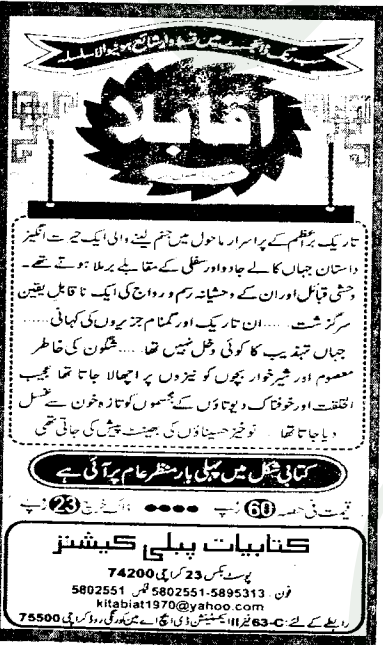 سب رنگ ڈائجسٹ میں قسط وار شائع ہونے والا سلسلہ
اقابلا
تاریک براعظم کے پراسرار ماحول میں جنم لینے والی ایک حیرت انگیز
داستان جہاں کالے جادو اور سفلی کے مقابلے برملا ہوتے تھے۔
وحشی قبائل اور ان کے وحشیانہ رسم و رواج کی ایک ناقابل یقین
سرگزشت ..... ان تاریک اور گمنام جزیروں کی کہانی.....
جہاں تہذیب کا کوئی دخل نہیں تھا.....شگون کی خاطر
معصوم اور شیرخوار بچوں کو نیزوں پر اچھالا جاتا تھا عجیب
الخلقت اور خوفناک دیوتاؤں کے مجسموں کو تازہ خون سے غسل
دیا جاتا تھا ..... نوخیز حسیناؤں کی بھینٹ پیش کی جاتی تھی
کتابی شکل میں پہلی بار منظر عام پر آئی ہے
قیمت فی حصہ 60 روپے •••• ڈاک خرچ 23 روپے
کتابیات پبلی کیشنز
پوسٹ بکس 23 کراچی 74200
فون : 5895313-5802551 فیکس 5802551
kitabiat1970@yahoo.com
رابطے کے لئے :C-63 فیز II ایکسٹینشن ڈی ایچ اے مین کورنگی روڈ کراچی 75500